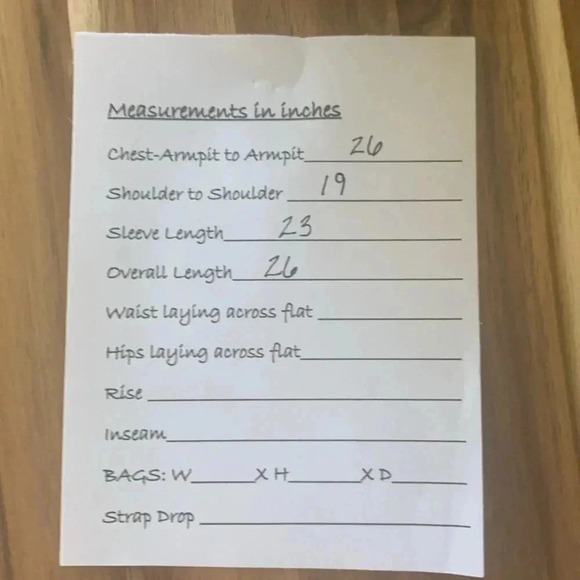 Measurements in inches
Chest-Armpit to Armpit 26
Shoulder to Shoulder 19
Sleeve Length 23
Overall Length 26
Waist laying across flat
Hips laying across flat
Rise
Inseam
BAGS: W______X H______X D______
Strap Drop